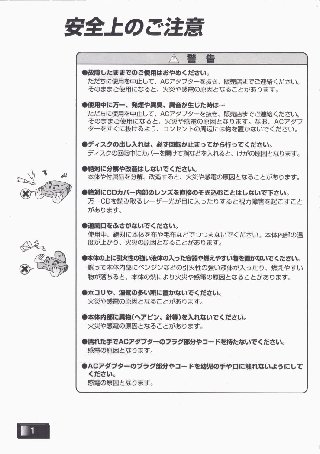 安全上のご注意
⚠ 警告
●故障したままでのご使用はおやめください。
ただちに使用を中止して、ACアダプターを抜き、販売店までご連絡ください。
そのままご使用になると、火災や感電の原因となることがあります。
●使用中に万一、発煙や異臭、異音が生じた時は…
ただちに使用を中止して、ACアダプターを抜き、販売店までご連絡ください。
そのままご使用になると、火災や感電の原因となります。なお、ACアダプ
ターをすぐに抜けるよう、コンセントの周辺には物を置かないでください。
●ディスクの出し入れは、必ず回転が止まってから行ってください。
ディスクの回転中にカバーを開けて指などを入れると、けがの原因となります。
●絶対に分解や改造はしないでください。
本体や付属品を分解、改造すると、火災や感電の原因となることがあります。
●絶対にCDカバー内部のレンズを直接のぞき込むことはしないで下さい。
万一CDを読み取るレーザー光が目に入ったりすると視力障害を起こすこと
があります。
●通風口をふさがないでください。
使用中、絶対に本体を布や毛布などでつつまないでください。本体内部の温
度が上がり、火災の原因となることがあります。
●本体の上に引火性の強い液体の入った容器や燃えやすい物を置かないでください。
誤って本体内部にベンジンなどの引火性の強い液体が入ったり、燃えやすい
物が落ちると、本体の熱により火災や感電の原因となることがあります。
●ホコリや、湿気の多い所に置かないでください。
火災や感電の原因となることがあります。
●本体内部に異物(ヘアピン、針等)を入れないでください。
火災や感電の原因となることがあります。
●濡れた手でACアダプターのプラグ部分やコードを持たないでください。
感電の原因となります。
●ACアダプターのプラグ部分やコードを幼児の手や口に触れないようにして
ください。
感電の原因となります。
1